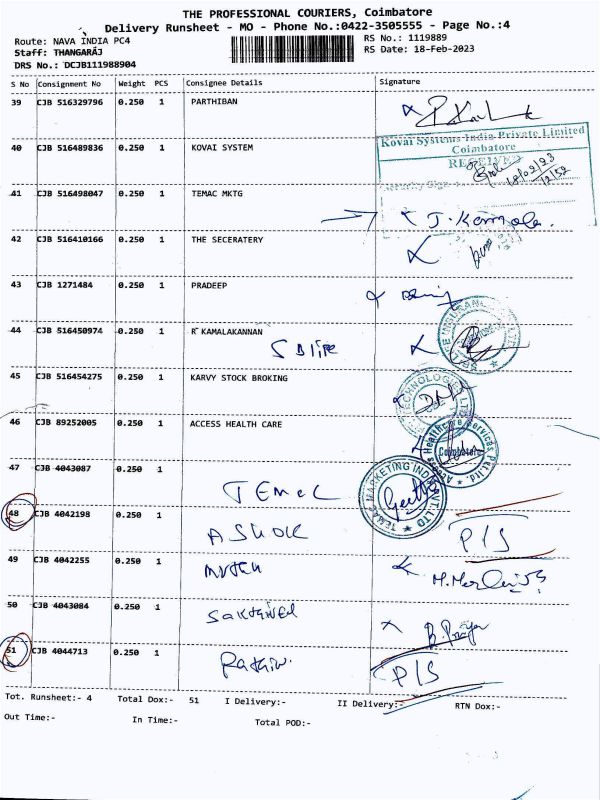 THE PROFESSIONAL COURIERS, Coimbatore
Delivery Runsheet - MO - Phone No.:0422-3505555 - Page No.:4
Route: NAVA INDIA PC4 RS No.: 1119889
Staff: THANGARAJ RS Date: 18-Feb-2023
DRS No.: DCJB111988904
S No Consignment No Weight PCS Consignee Details Signature
39 CJB 516329796 0.250 1 PARTHIBAN
Kovai Systems India Private Limited
Coimbatore
40 CJB 516489836 0.250 1 KOVAI SYSTEM RECEIVED
18/02/23
12/52
41 CJB 516498047 0.250 1 TEMAC MKTG
J. Kamala.
42 CJB 516410166 0.250 1 THE SECERATERY
43 CJB 1271484 0.250 1 PRADEEP
44 CJB 516450974 0.250 1 R KAMALAKANNAN
45 CJB 516454275 0.250 1 KARVY STOCK BROKING
46 CJB 89252005 0.250 1 ACCESS HEALTH CARE
Access Healthcare Services Pvt.Ltd
Coimbatore
47 CJB 4043087 0.250 1
TEMAC MARKETING INDIA PVT. LTD
TEMAC
48 CJB 4042198 0.250 1
ASHOK P/S
49 CJB 4042255 0.250 1
50 CJB 4043084 0.250 1
Sakthivel B. Priya
51 CJB 4044713 0.250 1
P/S
Tot. Runsheet:- 4 Total Dox:- 51 I Delivery:- II Delivery:- RTN Dox:-
Out Time:- In Time:- Total POD:-